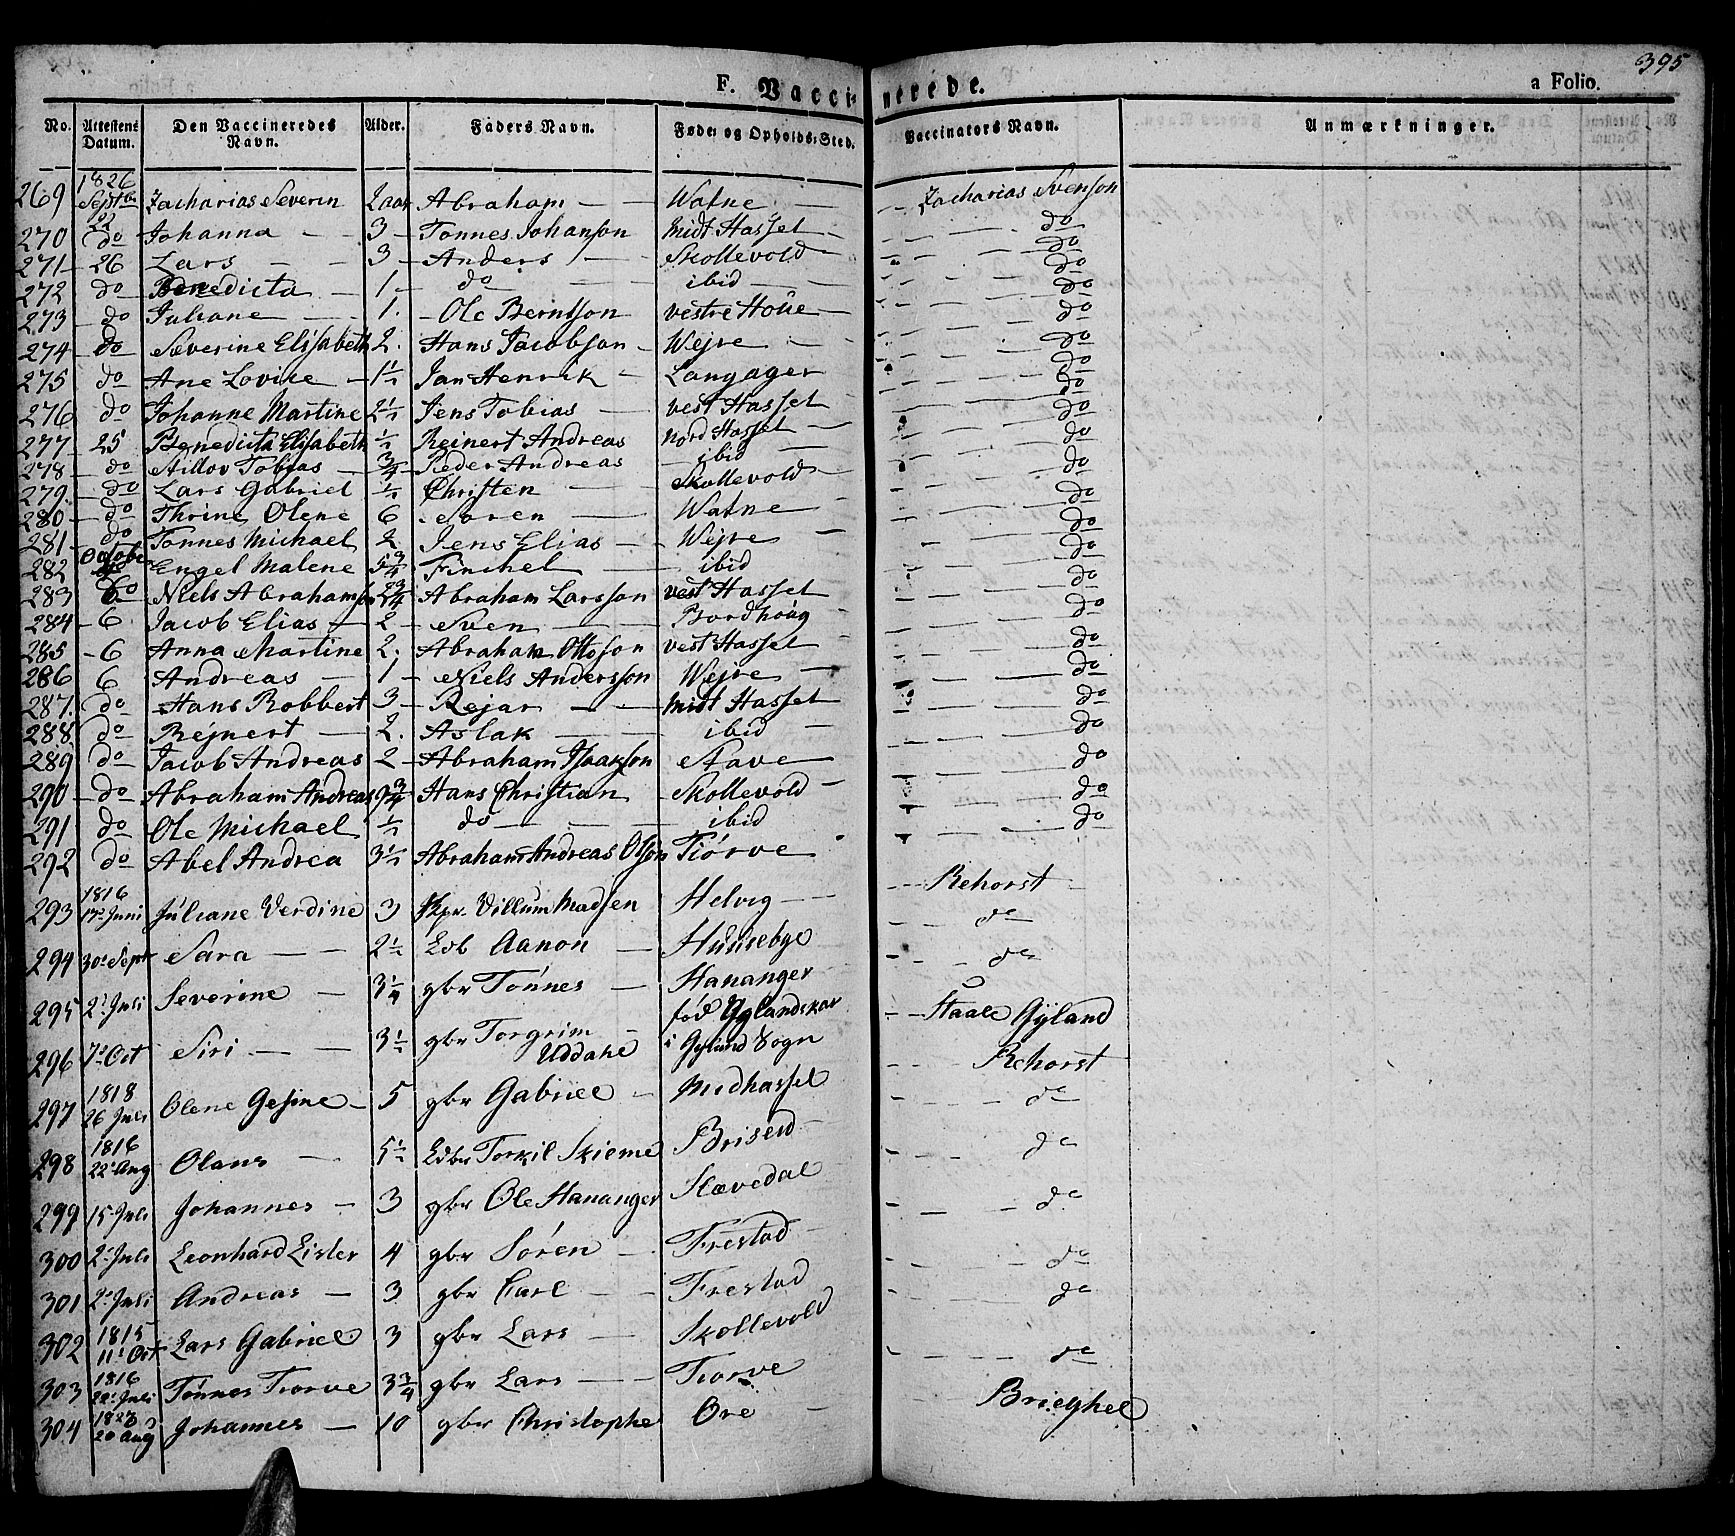 395
F. Vaccinerede. a Folio.
No. Attestens Datum. Den Vaccineredes Navn. Alder. Faders Navn. Føde- og Opholds-Sted. Vaccinators Navn. Anmærkninger.
1826
269 Septbr 22 Zacharias Severin 2 aar Abraham — — Watne — Zacharias Svenson
270 do Johanna — — 3 — Tønnes Johanson Midt Hassel — do
271 — 26 Lars — — 3 — Anders — Skollevold — do
272 do Benedicta — 1 — do — — ibid — do
273 — do Juliane — 1. — Ole Berntson vestre Houe — do
274 — do Severine Elisabeth 2. Hans Jacobson — Wejre — do
275 do Ane Lovise — 1½ Jan Henrik — Langager do
276 do Johanne Martine 2½ Jens Tobias — vest Hassel — do
277 — 25 Benedicta Elisabeth ½ Reinert Andreas nord Hassel — do
278 — do Tobias — ¾ Peder Andreas — ibid — do
279. — do Lars Gabriel ½ Christen — Skollevold — do
280 — do Thrine Olene 6 Søren — Watne — do
281 — do Tønnes Michael 2 Jens Elias — Wejre — do
282 October Engel Malene 5¾ Finchel — ibid do
283 do Niels Abrahamson 2¾ Abraham Larsson vest Hassel do
284 — 6 Jacob Elias — 2 — Sven — Bordhoug do
285 — 6 Anna Martine 2. Abraham Ottoson vest Hassel do
286 6 Andreas — 1 — Niels Andersson Wejre — do
287. do Hans Robbert 3 — Rejar — — midt Hassel do
288 do Rejnert — 2. Aslak — ibid — do
289 do Jacob Andreas 2 — Abraham Isaakson Stave do
290 — do Abraham Andreas 9¾ Hans Christian Skollevold do
291 do Ole Michael ½ do — — ibid do
292 do Abel Andrea 3½ Abraham Andreas Olson Tiørve do
1816
293 17de Juni Juliane Verdine 3 Skpr. Villum Madsen Helvig — Rehorst —
294 30te Septr Sara — 2½ Edb Aanon — Huusebye do
295 2den Juli Severine — 3¼ gbr Tønnes — Hananger do
296 7de Oct Siri — — 3½ gbr Torgrim Uddahl fød Gylandskar i Gyland Sogn Staale Gyland
1818
297 26 Juli Olene Gesine — 5 gbr Gabriel — Midhassel Rehorst
1816
298 22de Aug Olaus — 5½ Edbr Torkil Skieme Brisend — do
299 15 Juli Johannes — 3 gbr Ole Hananger Slevedal do
300 2den Juli Leonhard Eisler 4 gbr Søren — Frestad — do
301 2den Juli Andreas — 3 gbr Carl — Frestad do
1815
302 11te Oct Lars Gabriel 3 gbr Lars — Skollevold do
1816
303 22de Juli Tønnes Tiorve 3¾ gbr Lars — — Tiorve do
304 20 Aug Johannes — 10 gbr Christophe Ore — Brieghel